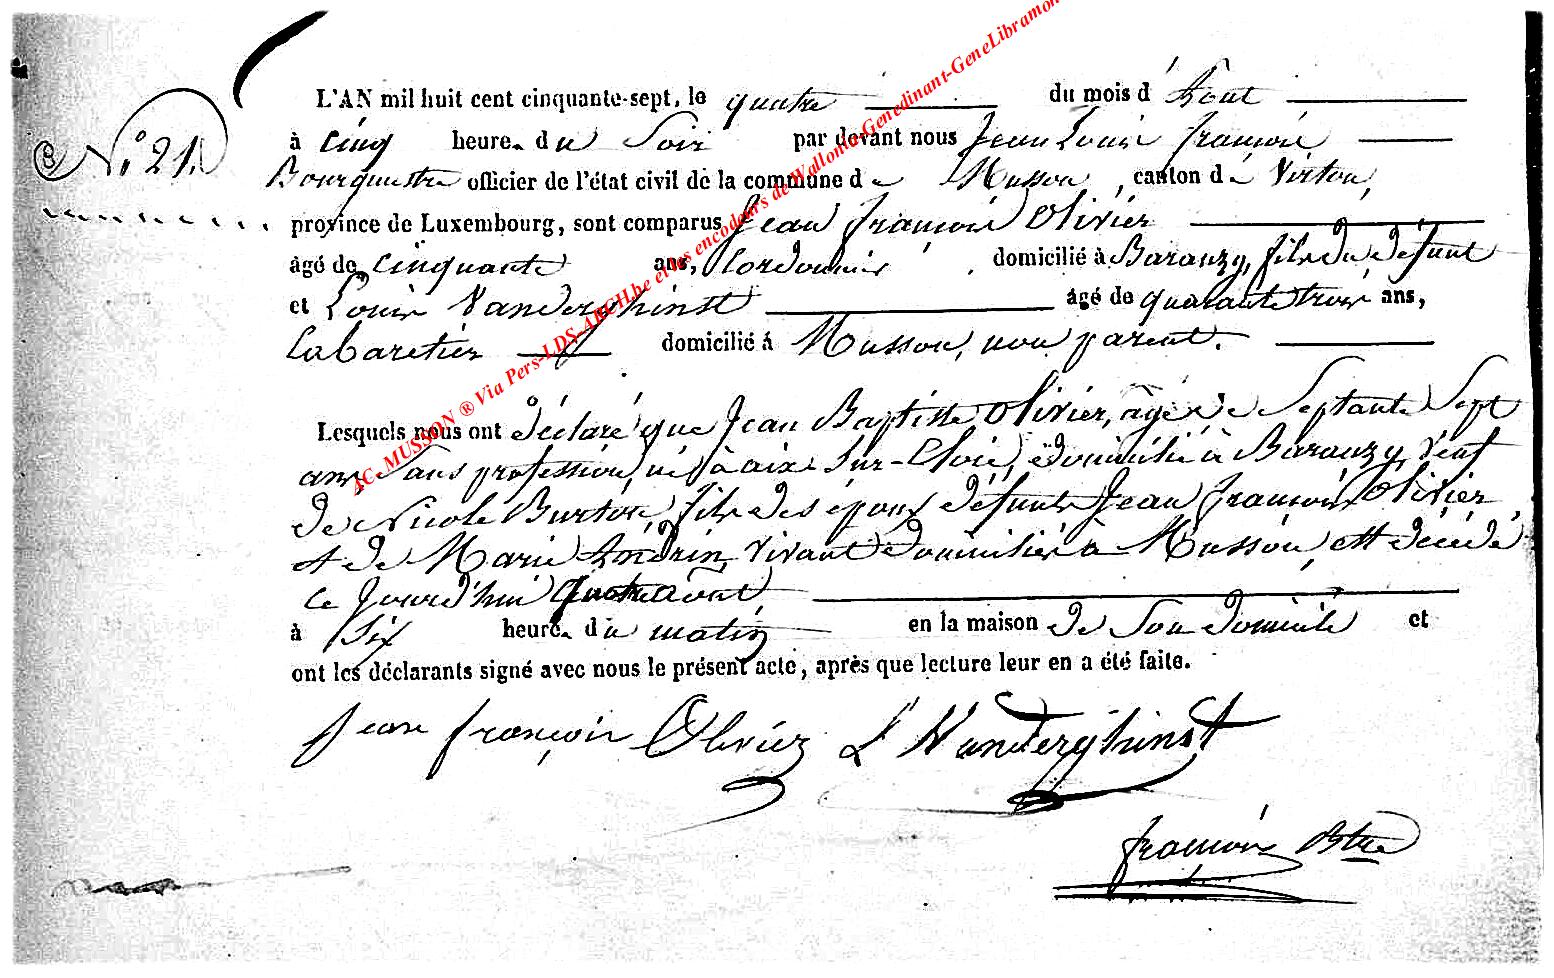 L'AN mil huit cent cinquante-sept, le quatre du mois d'Aout
No. 21. à cinq heure. du Soir par devant nous Jean Louis François
Bourguestre officier de l'état civil de la commune de Musson, canton de Virton,
province de Luxembourg, sont comparus Jean François Olivier
âgé de cinquante ans, Cordonnier domicilié à Baranzy, fils du défunt
et Louis Vanderghinst âgé de quarante trois ans,
Cabaretier domicilié à Musson, non parent.
Lesquels nous ont déclaré que Jean Baptiste Olivier, âgé de Septante Sept
ans, Sans profession, né à aix Sur-Cloie, domicilié à Baranzy, veuf
de Nicole Burton, fils des époux défunts Jean François Olivier,
et de Marie Andrin, vivant domiciliés à Musson, est décédé
ce jourd'hui quatre aout
à Six heure. du matin en la maison de Son domicile et
ont les déclarants signé avec nous le présent acte, après que lecture leur en a été faite.
Jean françois Olivier L Vanderghinst
françois Btre
AC. MUSSON ® Via Pers-LDS-ARCH.be et les encodeurs de Wallonia-Genedinant-GeneLibramon